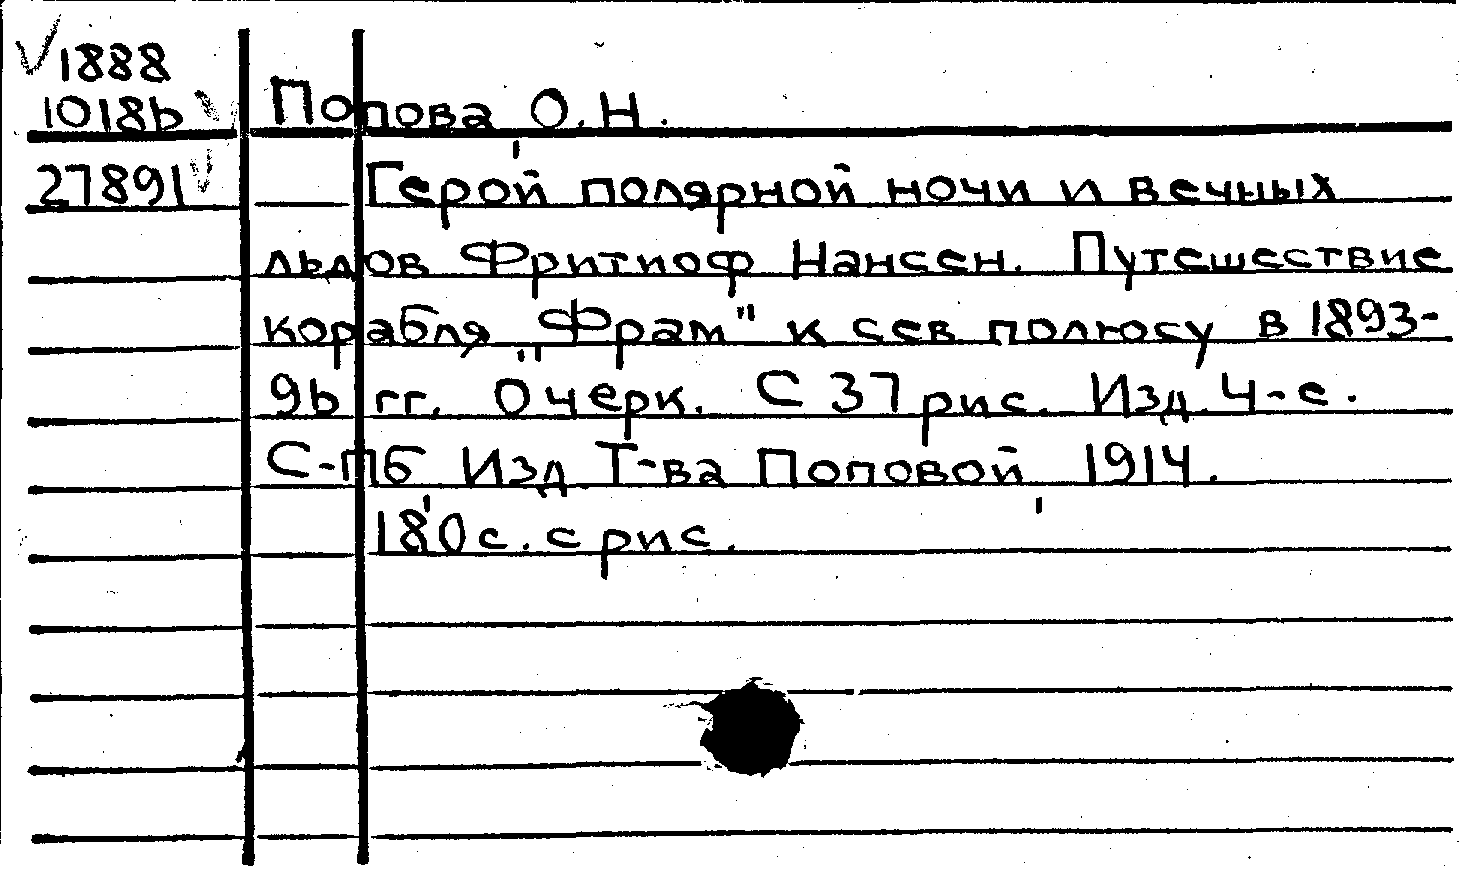 1888
10186 Попова О.Н.
27891 Герой полярной ночи и вечных
льдов Фритиоф Нансен. Путешествие
корабля "Фрам" к сев полюсу в 1893-
96 гг. Очерк. С 37 рис. Изд. 4-е.
С-Пб Изд Т-ва Поповой 1914.
180 с. с рис.